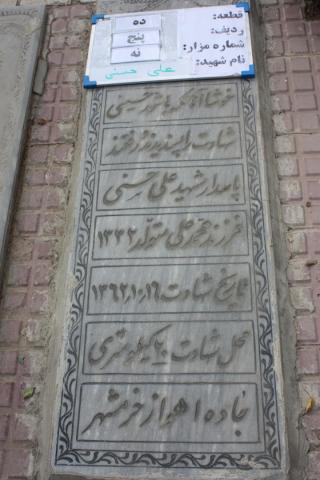 قطعه: ده
ردیف: پنج
شماره مزار: نه
نام شهید: علی حسنی
خوشا آنانکه با شور حسینی
شهادت را پسندیدند و رفتند
پاسدار شهید علی حسنی
فرزند محمد علی متولد ۱۳۳۲
تاریخ شهادت ۱۹ـ۱۰ـ۱۳۶۲
محل شهادت ۲۰ کیلومتری
جاده اهواز خرمشهر